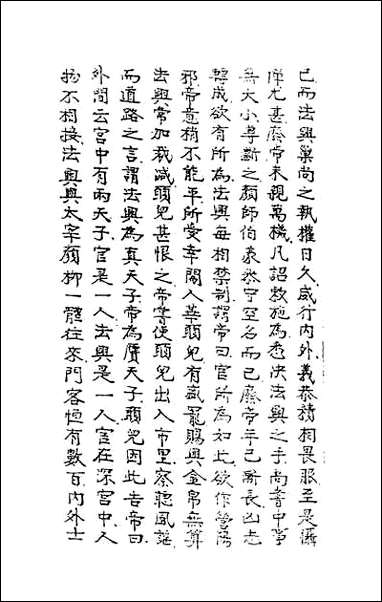 已而法興巢尚之執權日久威行内外義恭積相畏服至是懾
憚尤甚廢帝未親萬機凡詔敕施為悉決法興之手尚書中事
無大小專斷之顏師伯義恭守空名而已廢帝年已漸長凶志
轉成欲有所為法興每相禁制謂帝曰官所為如此欲作營陽
邪帝意稍不能平所愛幸閹人華願兒有盛寵賜與金帛無算
法興常加裁減願兒甚恨之帝嘗使願兒出入市里察聽風謠
而道路之言謂法興為真天子帝為贗天子願兒因此告帝曰
外間云宮中有兩天子官是一人法興是一人官在深宮中人
物不相接法興與太宰顏柳一體往來門客恒有數百内外士